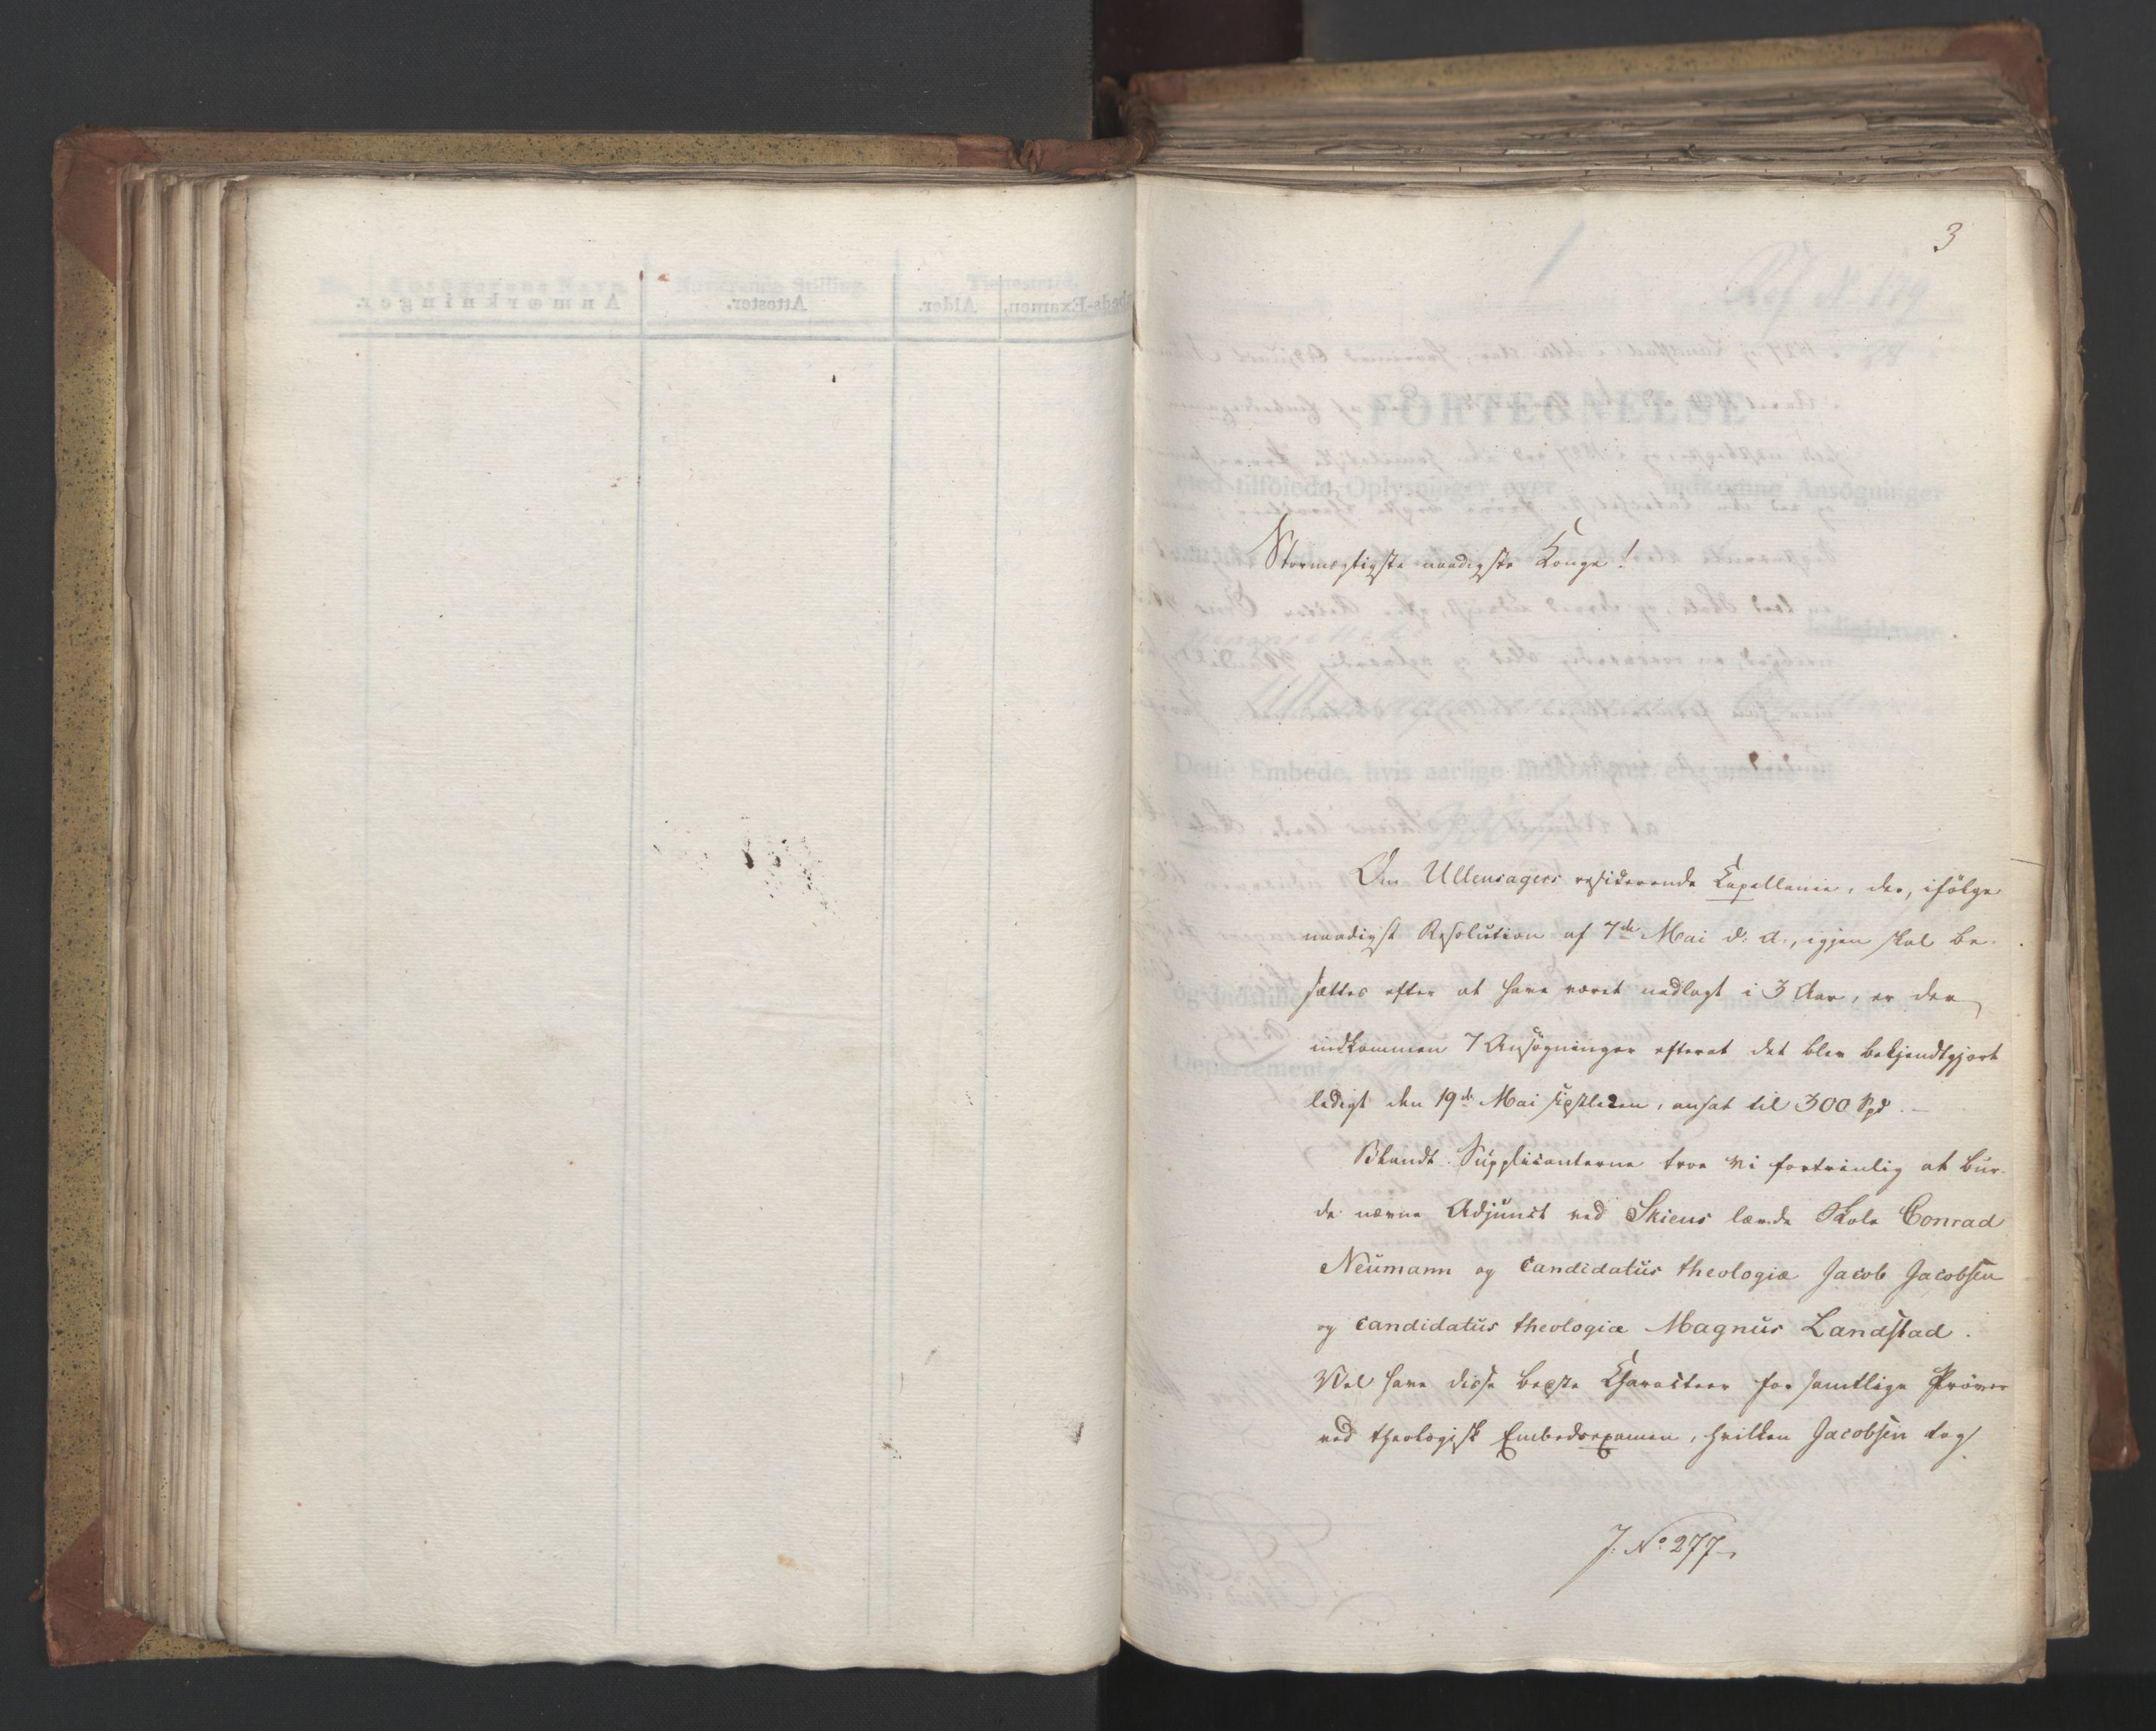 3
Stormægtigste naadigste Konge!
Om Ullensagers residerende Capellanie, der, ifölge
naadigst Resolution af 7de Mai d: A:, igjen skal be-
sættes efter at have været nedlagt i 3 Aar, er der
indkommen 7 Ansögninger efterat det blev bekjendtgjort
ledigt den 19de Mai sidstleden, ansat til 300 Spd. —
Blandt Supplicanterne troe vi fortrinlig at bur-
de nævne Adjunct ved Skiens lærde Skole Conrad
Neumann og Candidatus theologiæ Jacob Jacobsen
og Candidatus theologiæ Magnus Landstad.
Vel have disse bedste Charakteer for samtlige Pröver
ved theologisk Embedsexamen, hvilken Jacobsen tog
J. No 277